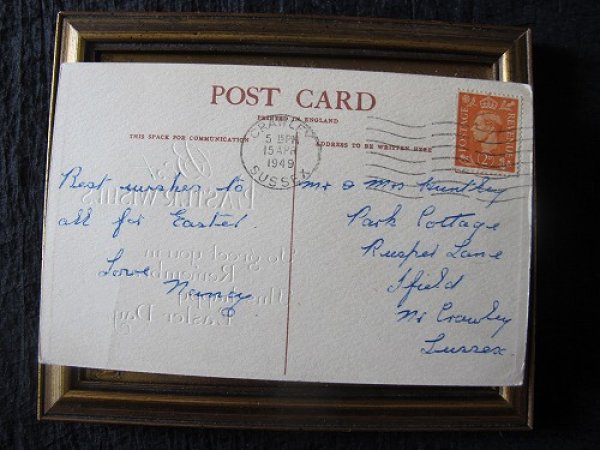 POST CARD
PRINTED IN ENGLAND
THIS SPACE FOR COMMUNICATION
ADDRESS TO BE WRITTEN HERE
CRAWLEY
5 PM
15 APR
1949
SUSSEX
POSTAGE
REVENUE
Best wishes to
all for Easter.
Love
Nancy
Mr & Mrs Huntley
Park Cottage
Rusper Lane
Ifield
Nr Crawley
Sussex.
Best
EASTER WISHES
To greet you in
Remembrance
this happy
Easter Day